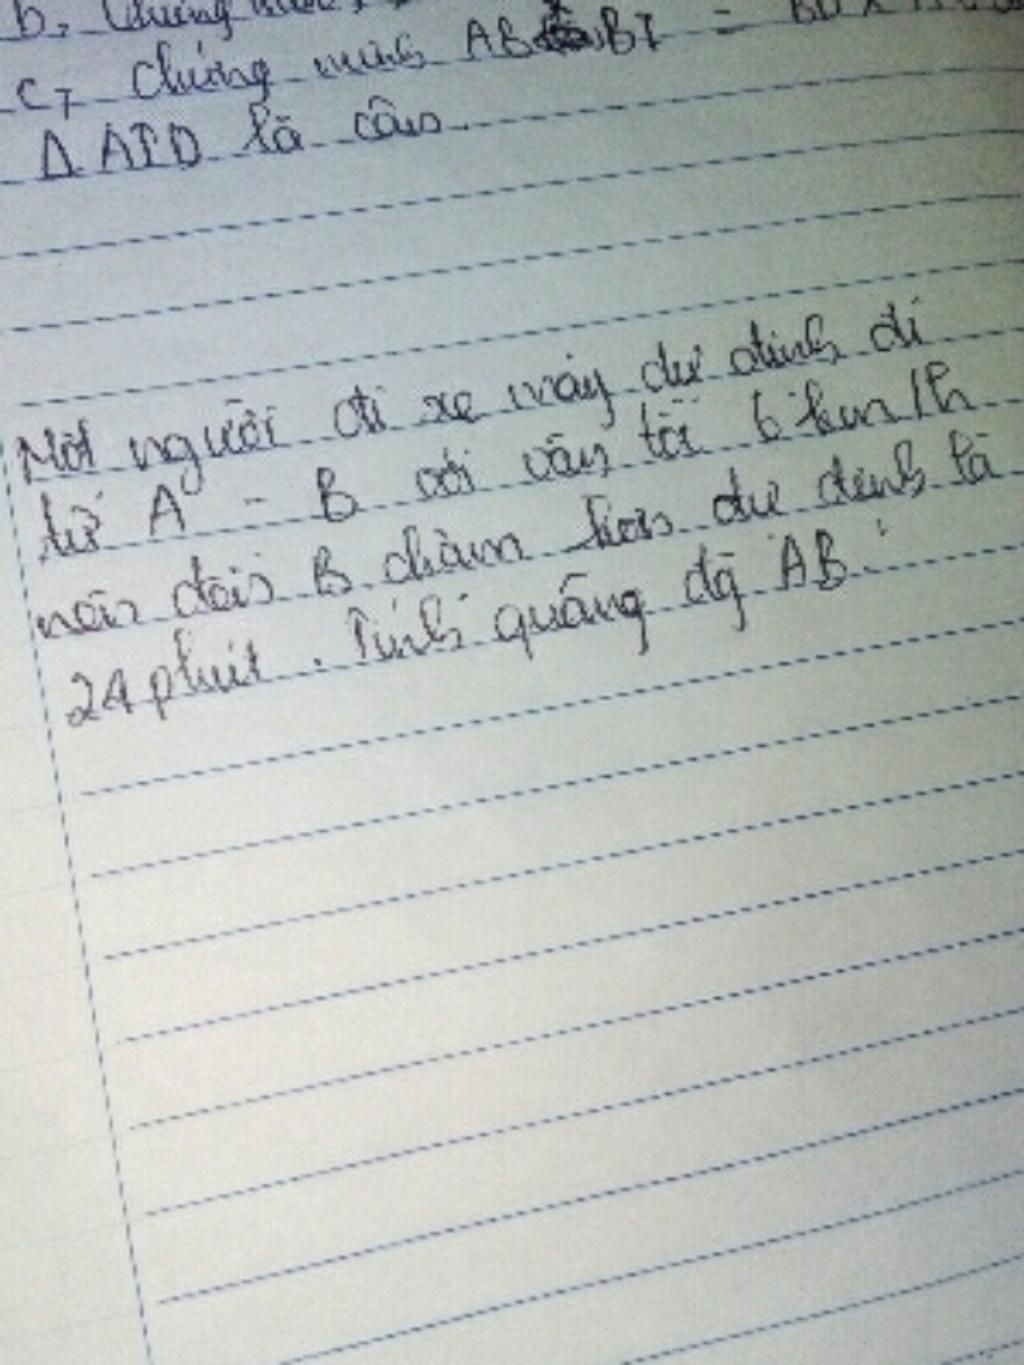 b, Chứng minh
c, Chứng minh AB BI = BD x
Δ AID là cân.
Một người đi xe máy dự định đi
từ A - B với vận tốc 6 km/h
nên đến B chậm hơn dự định là
24 phút. Tính quãng đg AB.